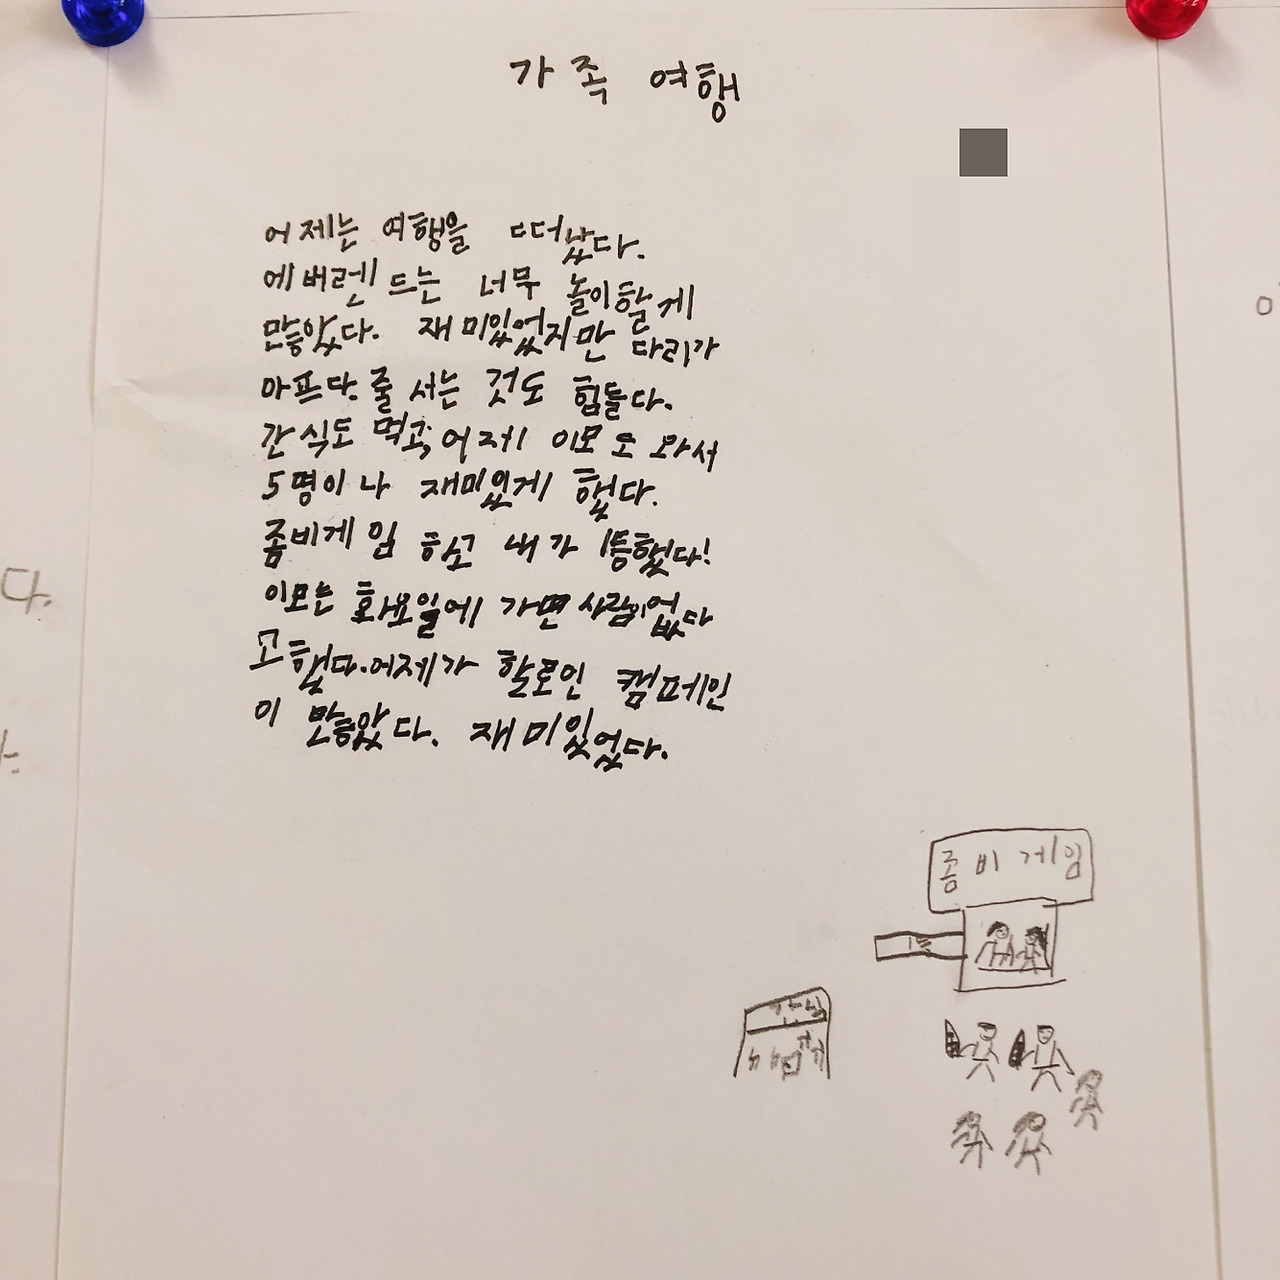 가족 여행
어제는 여행을 떠났다.
에버렌드는 너무 놀이할게
만핞았다. 재미있었지만 다리가
아프다. 줄 서는 것도 힘들다.
간식도 먹고, 어제 이모도 와서
5명이나 재미있게 했다.
좀비게임 하고 내가 1등했다!
이모는 화요일에 가면 사람이 없다
고했다. 어제가 할로인 캠페인
이 많았다. 재미있었다.
좀비게임
다.